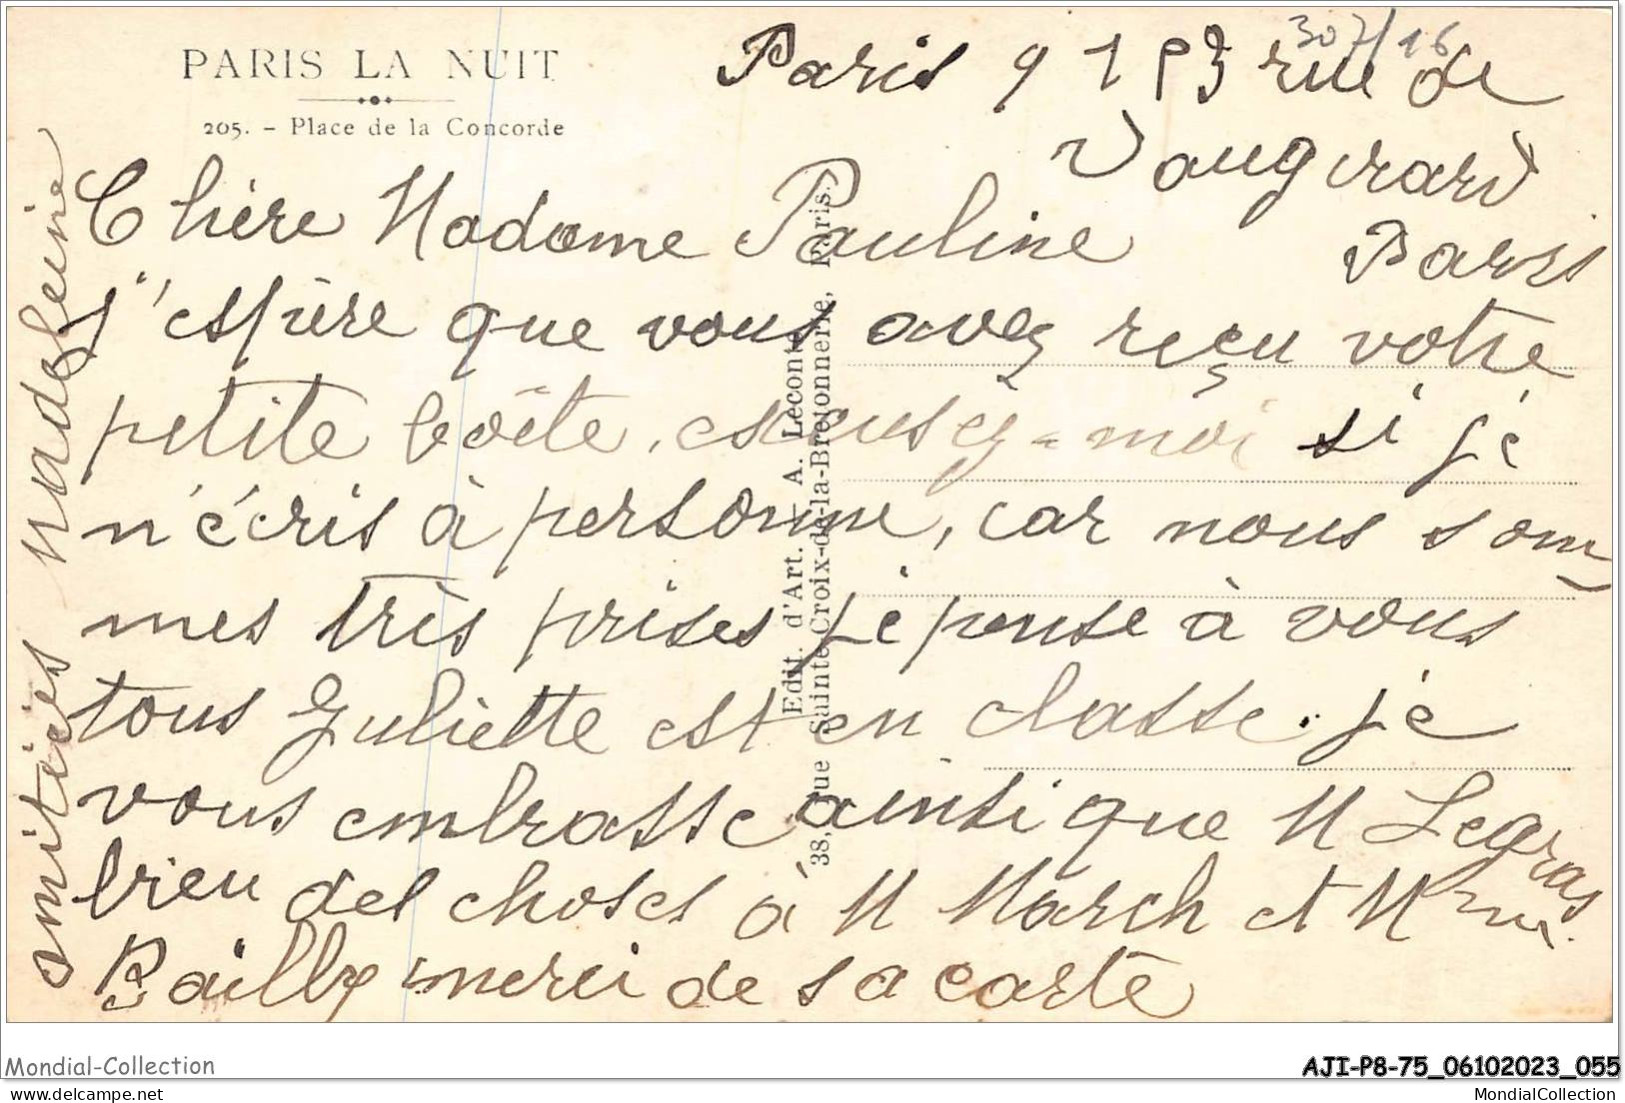 PARIS LA NUIT
205. - Place de la Concorde
307/16
Paris 9 1 53 rue de
Vaugirard
Paris
Chère Madame Pauline
j'espère que vous avez reçu votre
petite boîte, excusez-moi si je
n'écris à personne, car nous som
mes très prises je pense à vous
tous Juliette est en classe. je
vous embrasse ainsi que M Legras
bien des choses à M March et Mme
Bailly merci de sa carte
amitiées Madeleine
Edit. d'Art. - A. Leconte
38, rue Sainte-Croix-de-la-Bretonnerie, Paris.
Mondial-Collection
AJI-P8-75_06102023_055
delcampe.net
MondialCollection